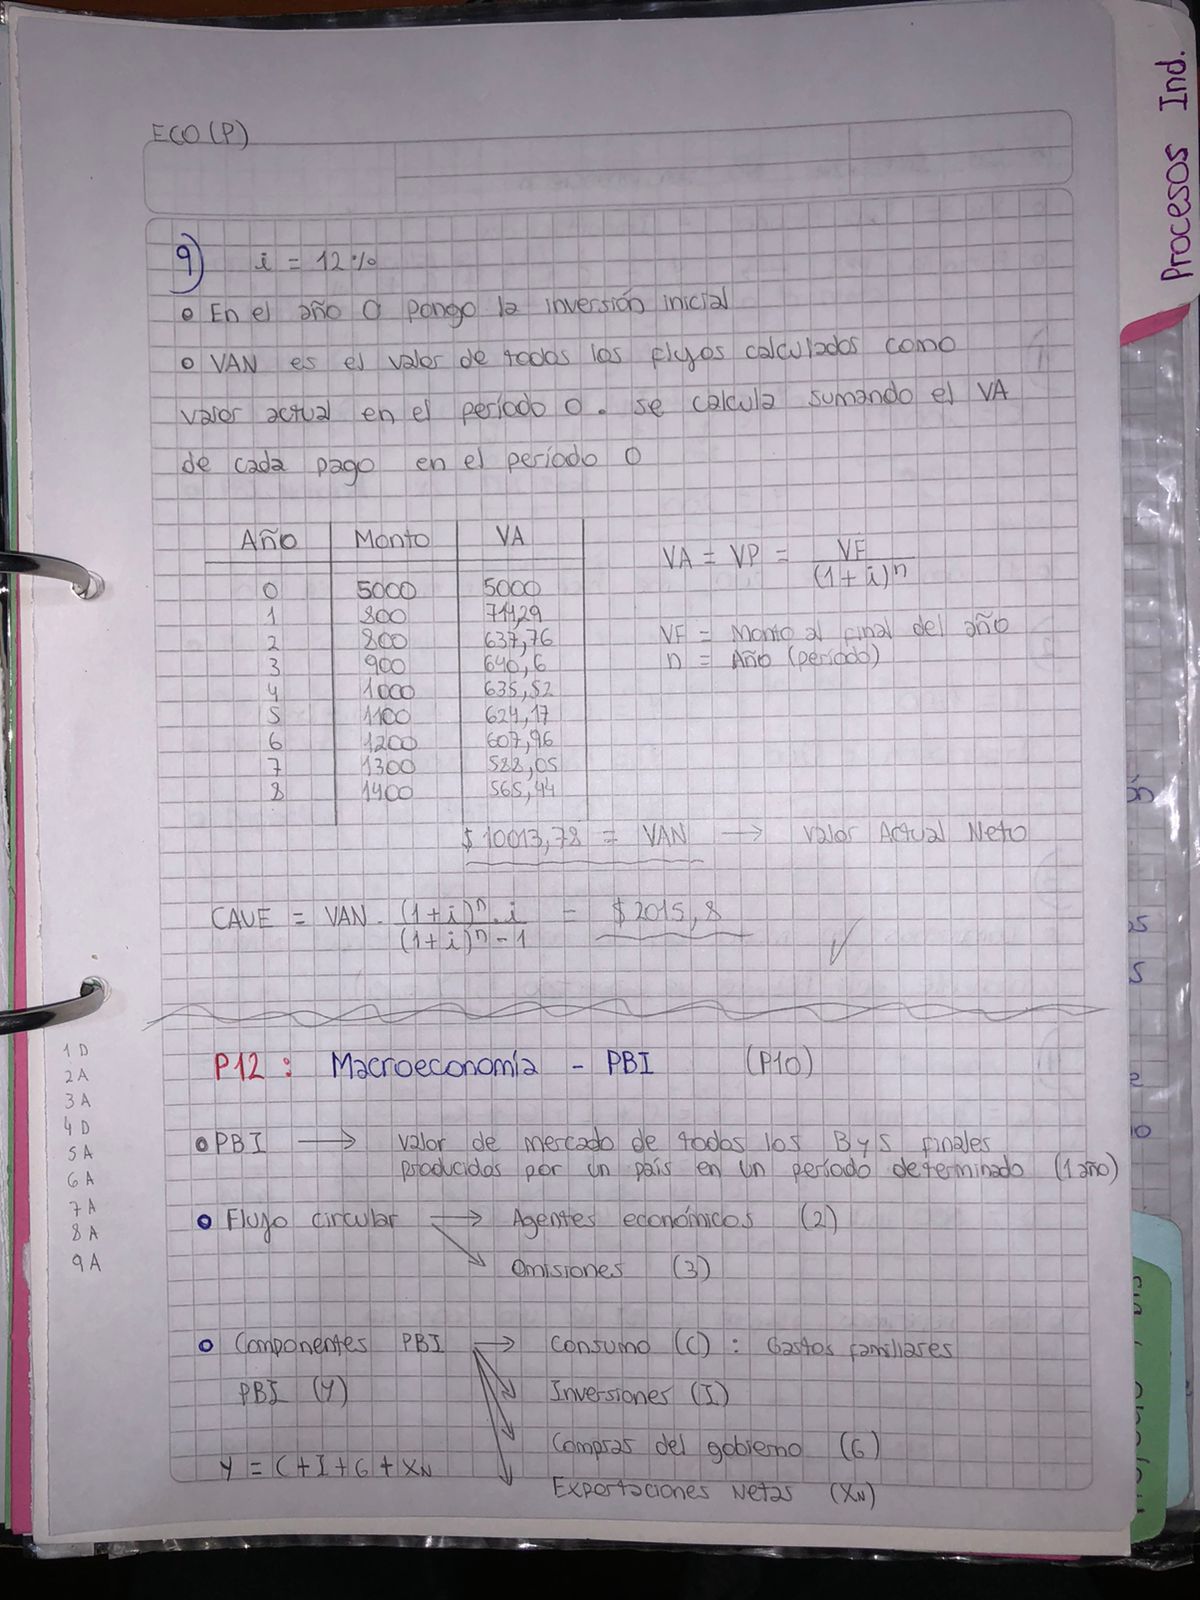 Procesos Ind.
ECO(P)
9) i = 12%
• En el año 0 pongo la inversión inicial
• VAN es el valor de todos los flujos calculados como
valor actual en el período 0. se calcula sumando el VA
de cada pago en el período 0
Año Monto VA
0 5000 5000
1 800 711,29
2 800 637,76
3 900 640,6
4 1000 635,52
5 1100 624,17
6 1200 607,96
7 1300 588,05
8 1400 565,44
VA = VP = VF / (1+i)^n
VF = Monto al final del año
n = Año (período)
$ 10013,78 = VAN → Valor Actual Neto
CAUE = VAN . (1+i)^n . i / (1+i)^n - 1 = $ 2015,8 ✓
1 D
2 A
3 A
4 D
5 A
6 A
7 A
8 A
9 A
P12: Macroeconomía - PBI (P10)
• PBI → valor de mercado de todos los B y S finales
producidos por un país en un período determinado (1 año)
• Flujo circular → Agentes económicos (2)
Omisiones (3)
• Componentes PBI → Consumo (C): Gastos familiares
PBI (Y) Inversiones (I)
Compras del gobierno (G)
Y = C+I+G+XN
Exportaciones Netas (XN)